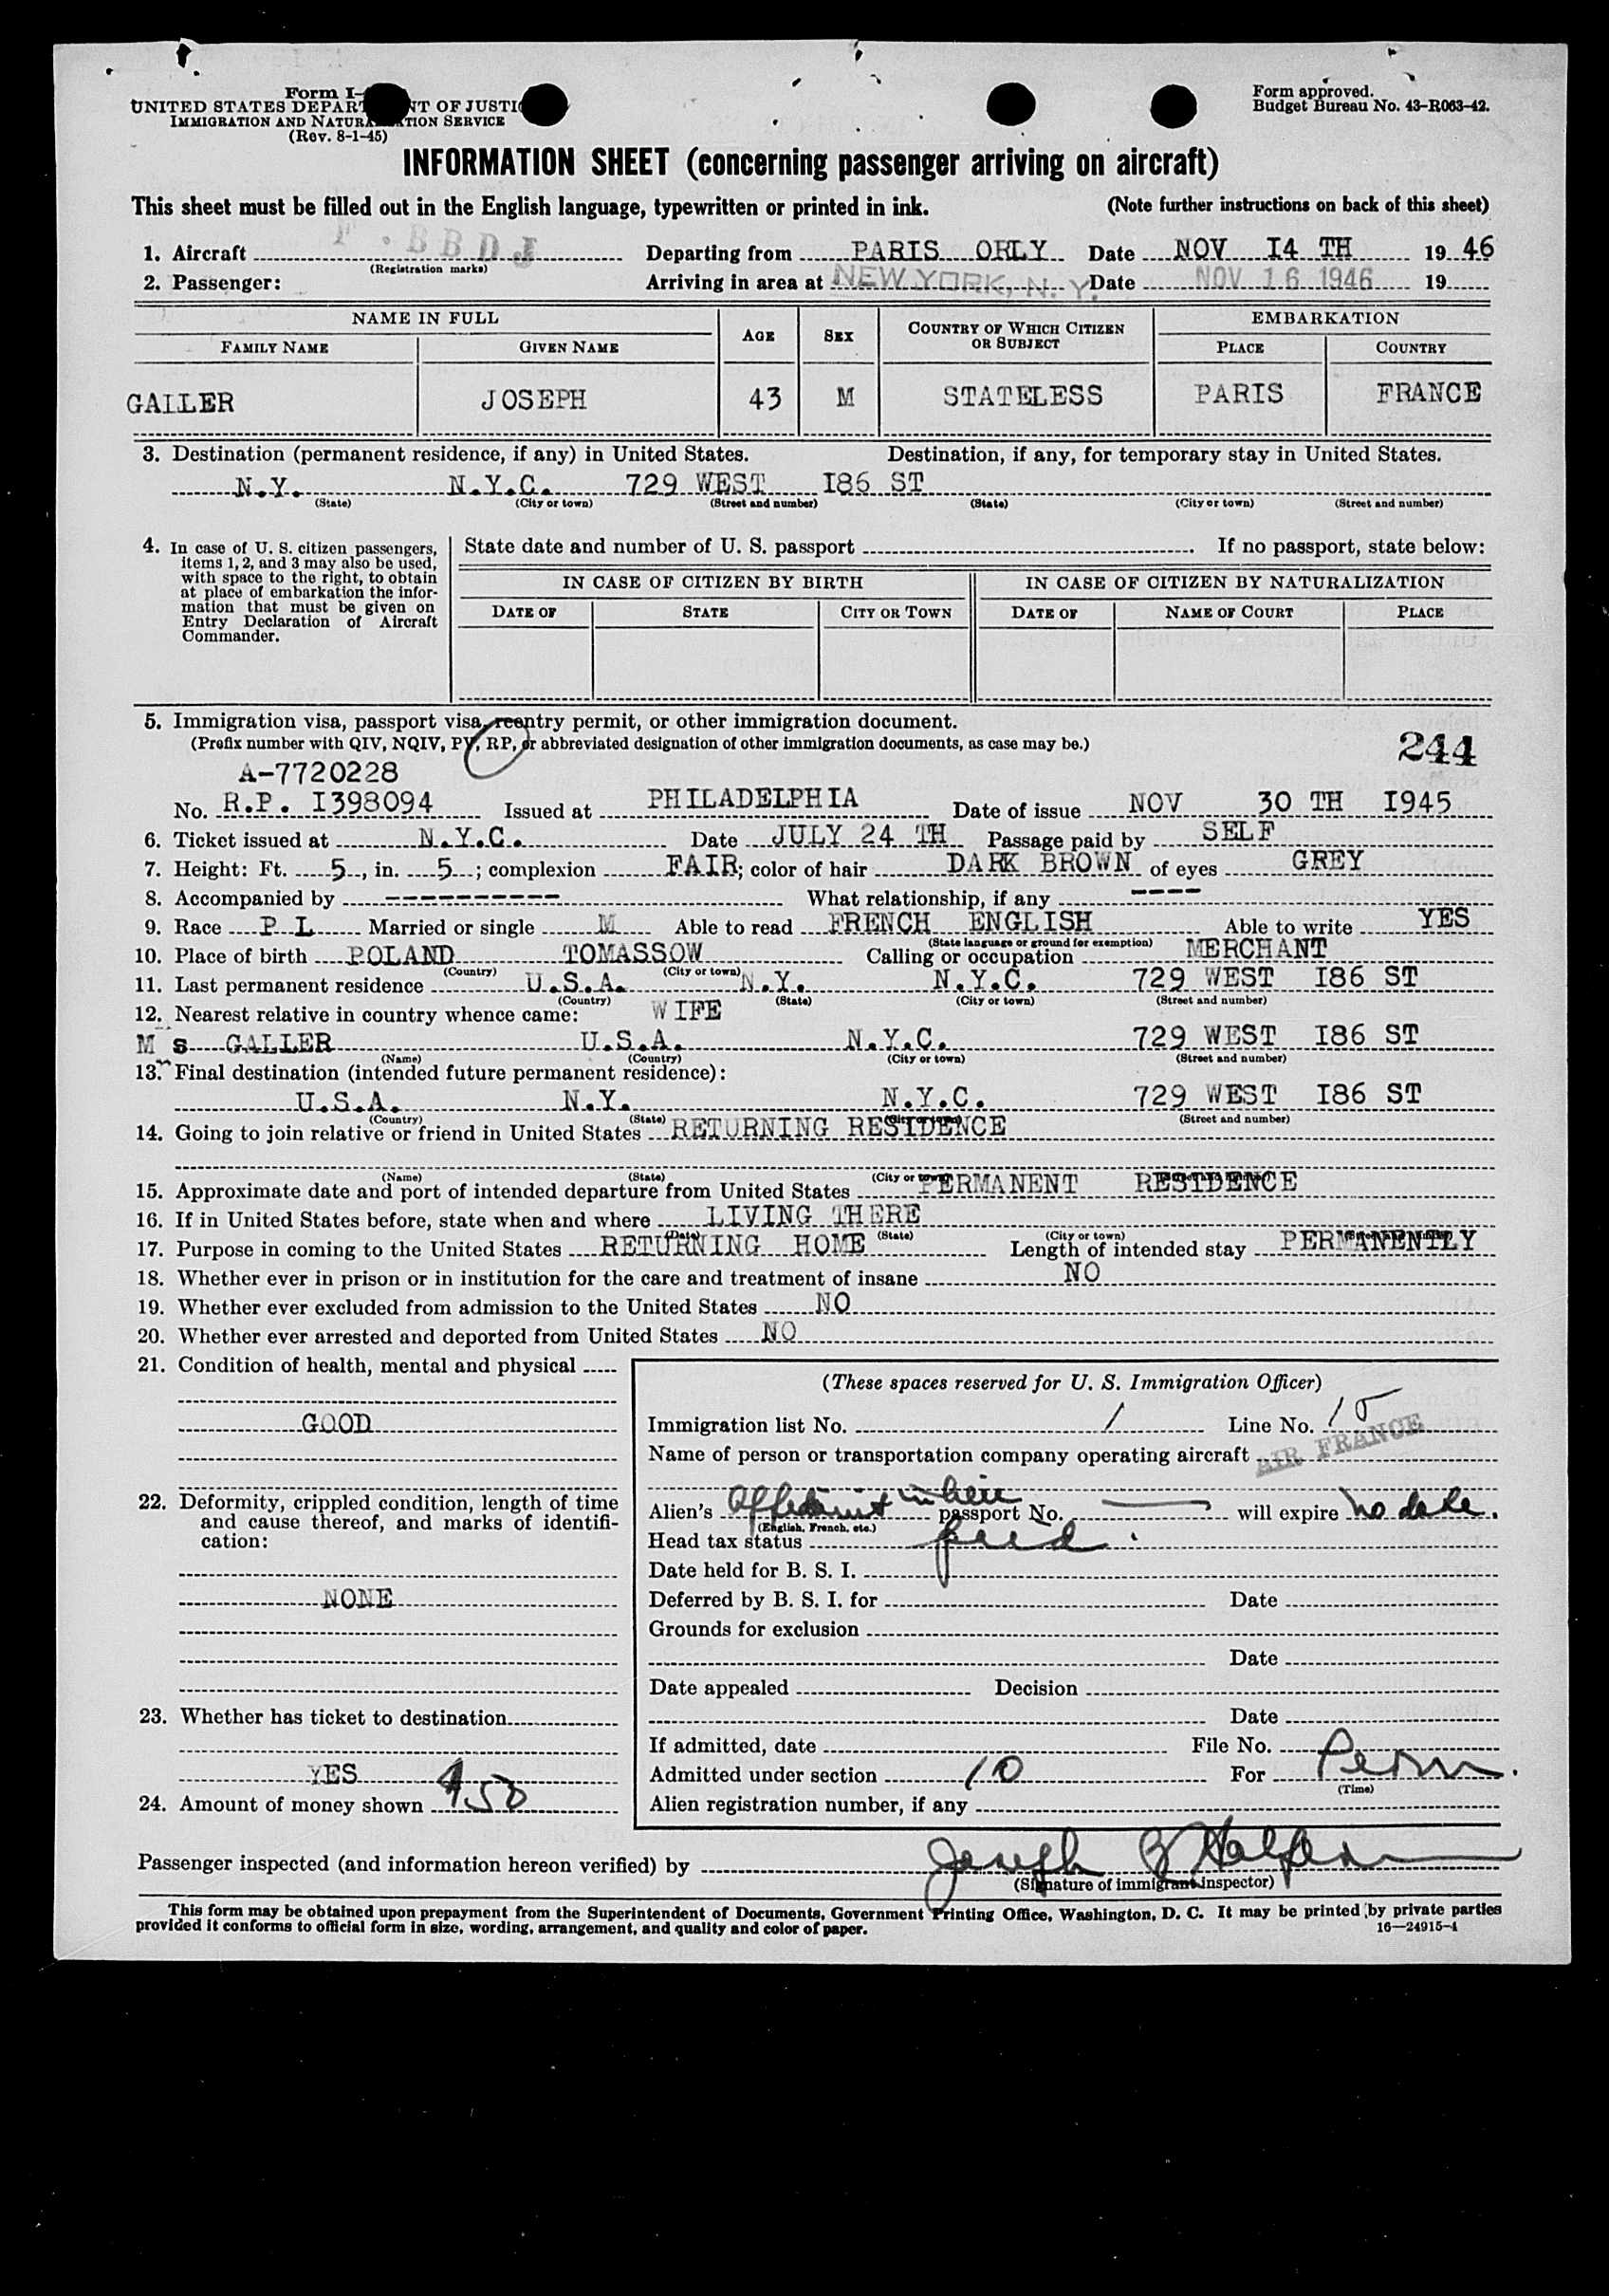 Form I-
UNITED STATES DEPART NT OF JUSTI
IMMIGRATION AND NATURALIZATION SERVICE
(Rev. 8-1-45)
Form approved.
Budget Bureau No. 43-R063-42.
INFORMATION SHEET (concerning passenger arriving on aircraft)
This sheet must be filled out in the English language, typewritten or printed in ink. (Note further instructions on back of this sheet)
1. Aircraft F.BBDJ Departing from PARIS ORLY Date NOV I4 TH 19 46
(Registration marks)
2. Passenger: Arriving in area at NEW YORK, N. Y. Date NOV 16 1946 19
NAME IN FULL AGE SEX COUNTRY OF WHICH CITIZEN OR SUBJECT EMBARKATION
FAMILY NAME GIVEN NAME PLACE COUNTRY
GALLER JOSEPH 43 M STATELESS PARIS FRANCE
3. Destination (permanent residence, if any) in United States. Destination, if any, for temporary stay in United States.
N.Y. N.Y.C. 729 WEST I86 ST
(State) (City or town) (Street and number) (State) (City or town) (Street and number)
4. In case of U. S. citizen passengers, items 1, 2, and 3 may also be used, with space to the right, to obtain at place of embarkation the information that must be given on Entry Declaration of Aircraft Commander.
State date and number of U. S. passport If no passport, state below:
IN CASE OF CITIZEN BY BIRTH IN CASE OF CITIZEN BY NATURALIZATION
DATE OF STATE CITY OR TOWN DATE OF NAME OF COURT PLACE
5. Immigration visa, passport visa, reentry permit, or other immigration document.
(Prefix number with QIV, NQIV, PV, RP, or abbreviated designation of other immigration documents, as case may be.)
244
A-7720228
No. R.P. I398094 Issued at PHILADELPHIA Date of issue NOV 30 TH I945
6. Ticket issued at N.Y.C. Date JULY 24 TH Passage paid by SELF
7. Height: Ft. 5, in. 5; complexion FAIR; color of hair DARK BROWN of eyes GREY
8. Accompanied by ---------- What relationship, if any ----
9. Race P L Married or single M Able to read FRENCH ENGLISH Able to write YES
(State language or ground for exemption)
10. Place of birth POLAND TOMASSOW Calling or occupation MERCHANT
(Country) (City or town)
11. Last permanent residence U.S.A. N.Y. N.Y.C. 729 WEST I86 ST
(Country) (State) (City or town) (Street and number)
12. Nearest relative in country whence came: WIFE
Mrs GALLER U.S.A. N.Y.C. 729 WEST I86 ST
(Name) (Country) (City or town) (Street and number)
13. Final destination (intended future permanent residence):
U.S.A. N.Y. N.Y.C. 729 WEST I86 ST
(Country) (State) (City or town) (Street and number)
14. Going to join relative or friend in United States RETURNING RESIDENCE
(Name) (State) (City or town) (Street and number)
15. Approximate date and port of intended departure from United States PERMANENT RESIDENCE
16. If in United States before, state when and where LIVING THERE
(Date) (State) (City or town) (Street and number)
17. Purpose in coming to the United States RETURNING HOME Length of intended stay PERMANENTLY
18. Whether ever in prison or in institution for the care and treatment of insane NO
19. Whether ever excluded from admission to the United States NO
20. Whether ever arrested and deported from United States NO
21. Condition of health, mental and physical
GOOD
22. Deformity, crippled condition, length of time and cause thereof, and marks of identification:
NONE
23. Whether has ticket to destination
YES
24. Amount of money shown $50
(These spaces reserved for U. S. Immigration Officer)
Immigration list No. 1 Line No. 15
Name of person or transportation company operating aircraft AIR FRANCE
Alien's Affidavit in lieu passport No. — will expire no date.
(English, French, etc.)
Head tax status
Date held for B. S. I.
Deferred by B. S. I. for Date
Grounds for exclusion
Date
Date appealed Decision
Date
If admitted, date File No.
Admitted under section 10 For Perm.
(Time)
Alien registration number, if any
Passenger inspected (and information hereon verified) by Joseph Halpern
(Signature of immigrant inspector)
This form may be obtained upon prepayment from the Superintendent of Documents, Government Printing Office, Washington, D. C. It may be printed by private parties
provided it conforms to official form in size, wording, arrangement, and quality and color of paper. 16—24915-1